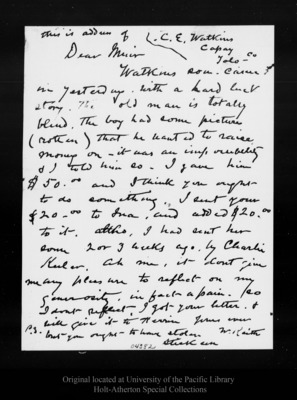 this is address of C. E. Watkins
Capay
Yolo Co
Dear Muir
Watkins son came
in yesterday. with a hard luck
story. The old man is totally
blind. The boy had some picture
(rotten) that he wanted to raise
money on - it was an impossibility
& I told him so. I gave him
$50.00 and I think you ought
to do something. I sent your
$20.00 to Ina, and added $20.00
to it. altho, I had sent her
some 2 or 3 weeks ago. by Charlie
Keeler. Ah me, it dont give
me any pleasure to reflect on my
generosity, in fact a pain. so
I dont reflect. I got your letter. &
will give it to Herrin Yours ever
P.S. but you ought to have stolen W. Keith
Stickeen
04352
Original located at University of the Pacific Library
Holt-Atherton Special Collections